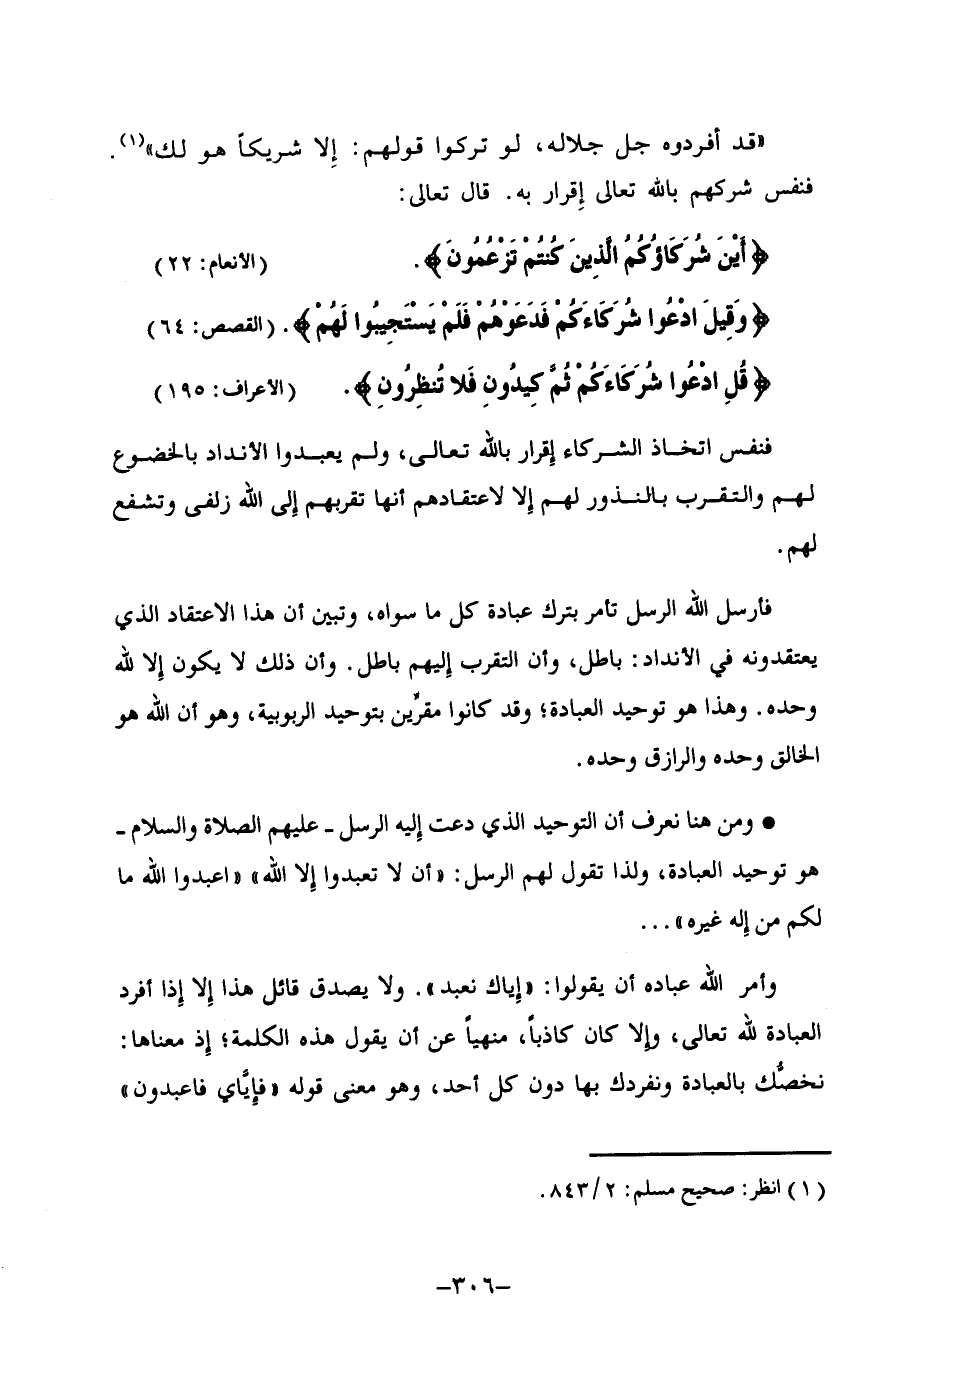 «قد أفردوه جل جلاله، لو تركوا قولهم: إلا شريكاً هو لك»(١).
فنفس شركهم بالله تعالى إقرار به. قال تعالى:
﴿أَيْنَ شُرَكَاؤُكُمُ الَّذِينَ كُنتُمْ تَزْعُمُونَ﴾. (الأنعام: ٢٢)
﴿وَقِيلَ ادْعُوا شُرَكَاءَكُمْ فَدَعَوْهُمْ فَلَمْ يَسْتَجِيبُوا لَهُمْ﴾. (القصص: ٦٤)
﴿قُلِ ادْعُوا شُرَكَاءَكُمْ ثُمَّ كِيدُونِ فَلا تُنظِرُونِ﴾. (الأعراف: ١٩٥)
فنفس اتخاذ الشركاء إقرار بالله تعالى، ولم يعبدوا الأنداد بالخضوع
لهم والتقرب بالنذور لهم إلا لاعتقادهم أنها تقربهم إلى الله زلفى وتشفع
لهم.
فأرسل الله الرسل تأمر بترك عبادة كل ما سواه، وتبين أن هذا الاعتقاد الذي
يعتقدونه في الأنداد: باطل، وأن التقرب إليهم باطل. وأن ذلك لا يكون إلا لله
وحده. وهذا هو توحيد العبادة؛ وقد كانوا مقرِّين بتوحيد الربوبية، وهو أن الله هو
الخالق وحده والرازق وحده.
● ومن هنا نعرف أن التوحيد الذي دعت إليه الرسل ـ عليهم الصلاة والسلام ـ
هو توحيد العبادة، ولذا تقول لهم الرسل: «أن لا تعبدوا إلا الله» «اعبدوا الله ما
لكم من إله غيره»...
وأمر الله عباده أن يقولوا: «إياك نعبد». ولا يصدق قائل هذا إلا إذا أفرد
العبادة لله تعالى، وإلا كان كاذباً، منهياً عن أن يقول هذه الكلمة؛ إذ معناها:
نخصُّك بالعبادة ونفردك بها دون كل أحد، وهو معنى قوله «فإيَّاي فاعبدون»
(١) انظر: صحيح مسلم: ٢/ ٨٤٣.
–٣٠٦–